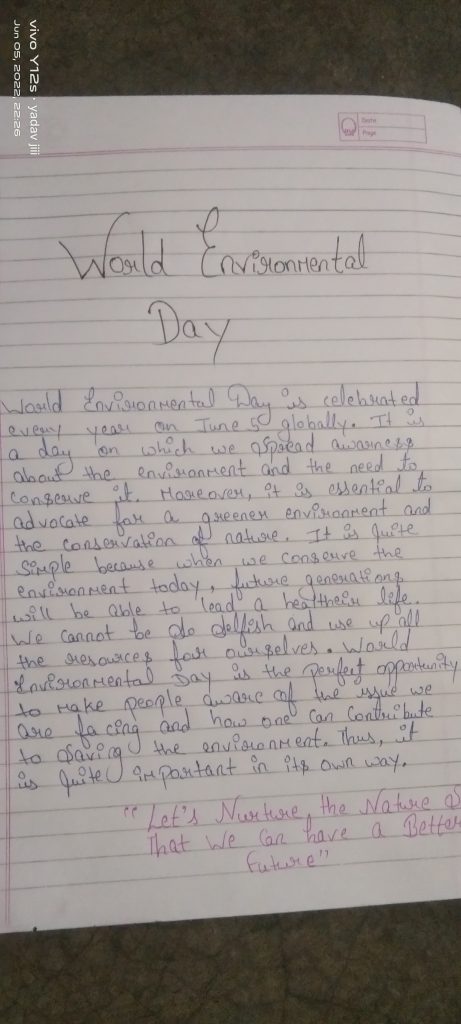 vivo Y12s · yadav jiii
Jun 05, 2022, 22:26
Date
Page
World Environmental
Day
World Environmental Day is celebrated
every year on June 5 globally. It is
a day on which we spread awarness
about the environment and the need to
conserve it. Moreover, it is essential to
advocate for a greener environment and
the conservation of nature. It is quite
simple because when we conserve the
environment today, future generations
will be able to lead a healtheir life.
We cannot be do selfish and use up all
the resources for ourselves. World
Environmental Day is the perfect opportunity
to make people aware of the issue we
are facing and how one can contribute
to saving the environment. Thus, it
is quite important in its own way.
"Let's Nurture the Nature so
That We Can have a Better
future"